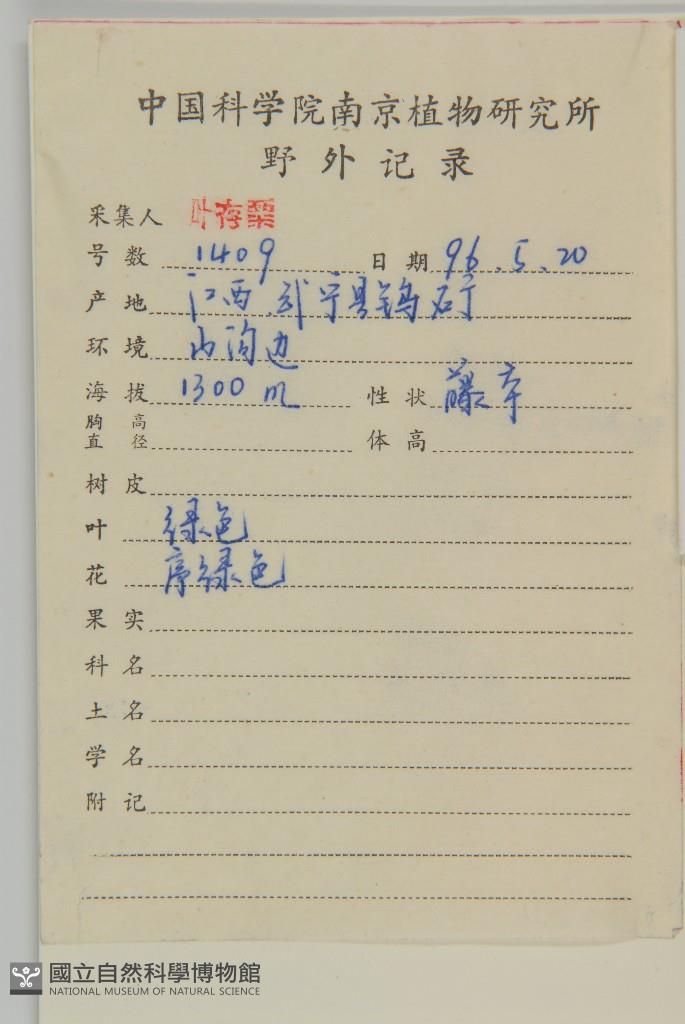 中国科学院南京植物研究所
野外记录
采集人 叶存粟
号数 1409 日期 96.5.20
产地 江西.武宁县钨矿
环境 山沟边
海拔 1300 m 性状 藤本
胸高直径 体高
树皮
叶 绿色
花 序绿色
果实
科名
土名
学名
附记
國立自然科學博物館
NATIONAL MUSEUM OF NATURAL SCIENCE